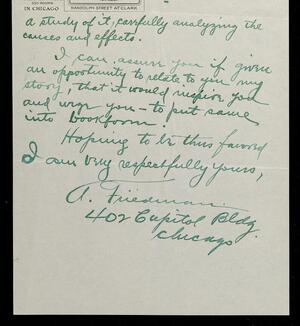 IN CHICAGO
RANDOLPH STREET AT CLARK
a study of it, carfully analyzing the
causes and effects.
I can assure you if given
an opportunity to relate to you my
story, that it would inspire you
and urge you - to put same
into bookform.
Hoping to be thus favored
I am very respectfully yours,
A. Friedman.
402 Capitol Bldg.
Chicago